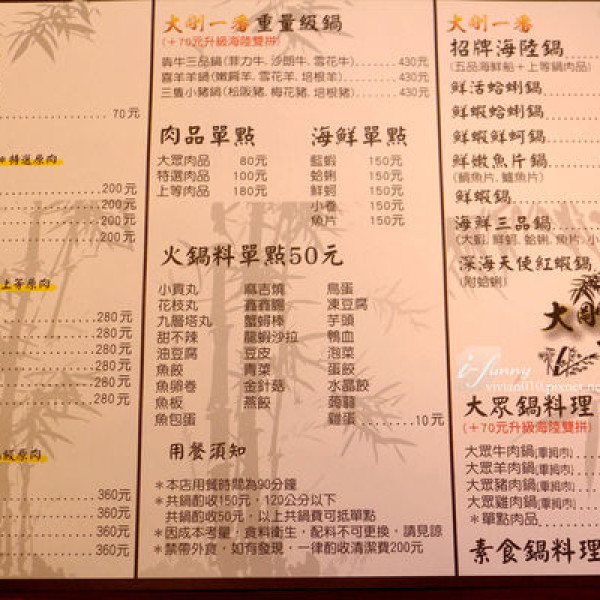 70元
特選原肉
200元
200元
200元
200元
上等原肉
280元
280元
280元
280元
280元
280元
級原肉
360元
360元
360元
360元
大剛一番 重量級鍋
(+70元升級海陸雙拼)
犇牛三品鍋(菲力牛、沙朗牛、雪花牛) 430元
喜羊羊鍋(嫩肩羊、雪花羊、培根羊) 430元
三隻小豬鍋(松阪豬、梅花豬、培根豬) 430元
肉品單點
大眾肉品 80元
特選肉品 100元
上等肉品 180元
海鮮單點
藍蝦 150元
蛤蜊 150元
鮮蚵 150元
小卷 150元
魚片 150元
火鍋料單點50元
小貢丸 麻吉燒 鳥蛋
花枝丸 鑫鑫腸 凍豆腐
九層塔丸 蟹蟳棒 芋頭
甜不辣 龍蝦沙拉 鴨血
油豆腐 豆皮 泡菜
魚餃 青菜 蛋餃
魚卵卷 金針菇 水晶餃
魚板 燕餃 蒟蒻
魚包蛋 雞蛋 10元
用餐須知
*本店用餐時間為90分鐘
*共鍋酌收150元,120公分以下
共鍋酌收50元,以上共鍋費可抵單點
*因成本考量,食料衛生,配料不可更換,請見諒
*禁帶外食,如有發現,一律酌收清潔費200元
大剛一番
招牌海陸鍋
(五品海鮮船+上等鍋肉品)
鮮活蛤蜊鍋
鮮蝦蛤蜊鍋
鮮蝦鮮蚵鍋
鮮嫩魚片鍋
(鯛魚片、鱸魚片)
鮮蝦鍋
海鮮三品鍋
(大蝦、鮮蚵、蛤蜊、魚片、小
深海天使紅蝦鍋
(附蛤蜊)
大剛
i-funny
vivien010.pixnet.ne
大眾鍋料理
(+70元升級海陸雙拼)
大眾牛肉鍋(單純肉)
大眾羊肉鍋(單純肉)
大眾豬肉鍋(單純肉)
大眾雞肉鍋(單純肉)
*單點肉品
素食鍋料理